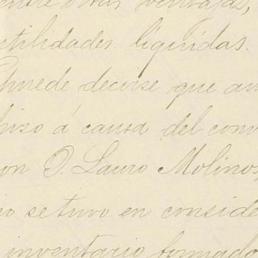 entre otras ventajas,
utilidades líquidas.
Puede decirse que au
hizo á causa del conv
on D. Lauro Molinos
no se tuvo en conside
inventario formado